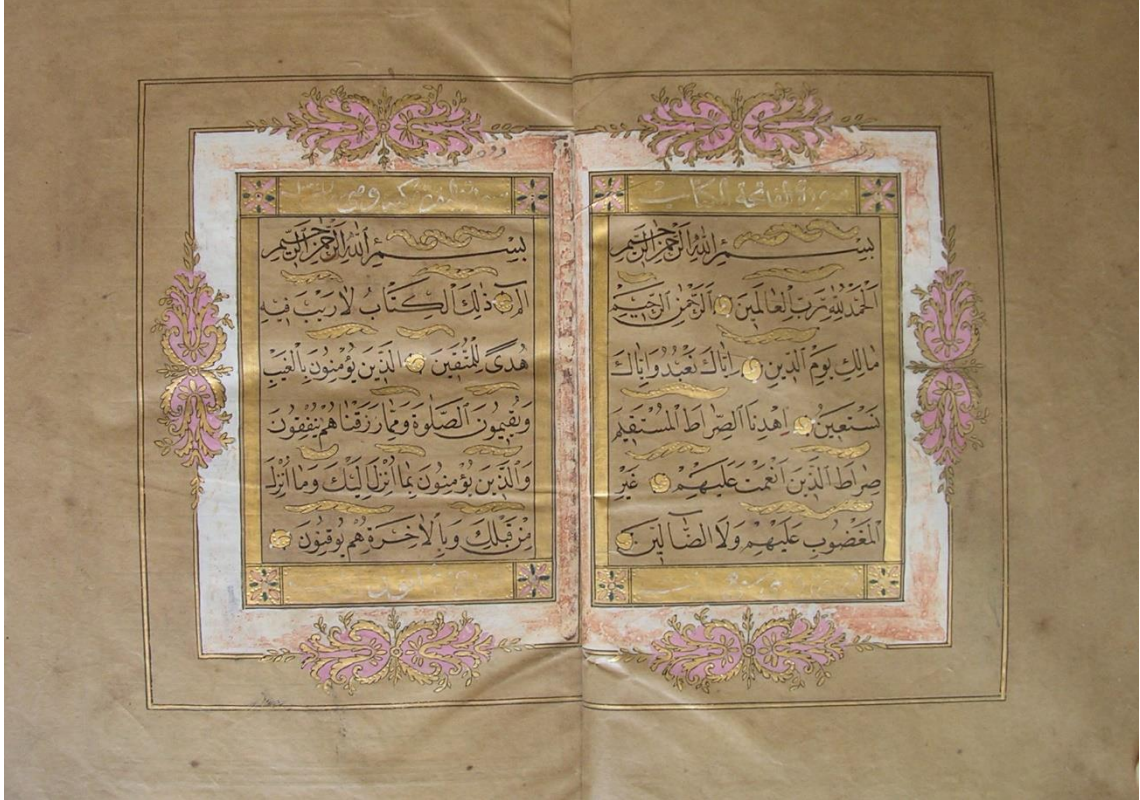 سورة الفاتحة الكتاب
بسم الله الرحمن الرحيم
الحمد لله رب العالمين الرحمن الرحيم
مالك يوم الدين اياك نعبد واياك
نستعين اهدنا الصراط المستقيم
صراط الذين انعمت عليهم غير
المغضوب عليهم ولا الضالين
بسم الله الرحمن الرحيم
الم ذلك الكتاب لا ريب فيه
هدى للمتقين الذين يؤمنون بالغيب
ويقيمون الصلوة ومما رزقناهم ينفقون
والذين يؤمنون بما انزل اليك وما انزل
من قبلك وبالاخرة هم يوقنون